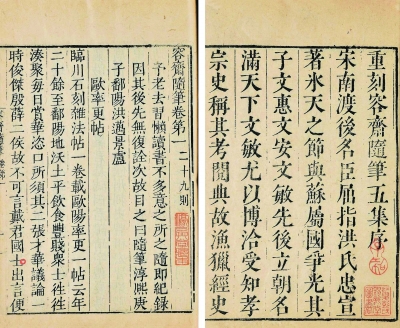 重刻容齋隨筆五集序
宋南渡後名臣屈指洪氏忠宣
著氷天之節與蘇屬國爭光其
子文惠文安文敏先後立朝名
滿天下文敏尤以博洽受知孝
宗史稱其考閱典故漁獵經史
容齋隨筆卷第一二十九則
予老去習懶讀書不多意之所之隨即紀錄
因其後先無復詮次故目之曰隨筆淳熙庚
子鄱陽洪邁景盧
歐率更帖
臨川石刻雜法帖一卷載歐陽率更一帖云年
二十餘至鄱陽地沃土平飲食豐賤衆士往往
湊聚每日賞華恣口所須其二張才華議論一
時俊傑殷薛二侯故不可言戴君國士出言便